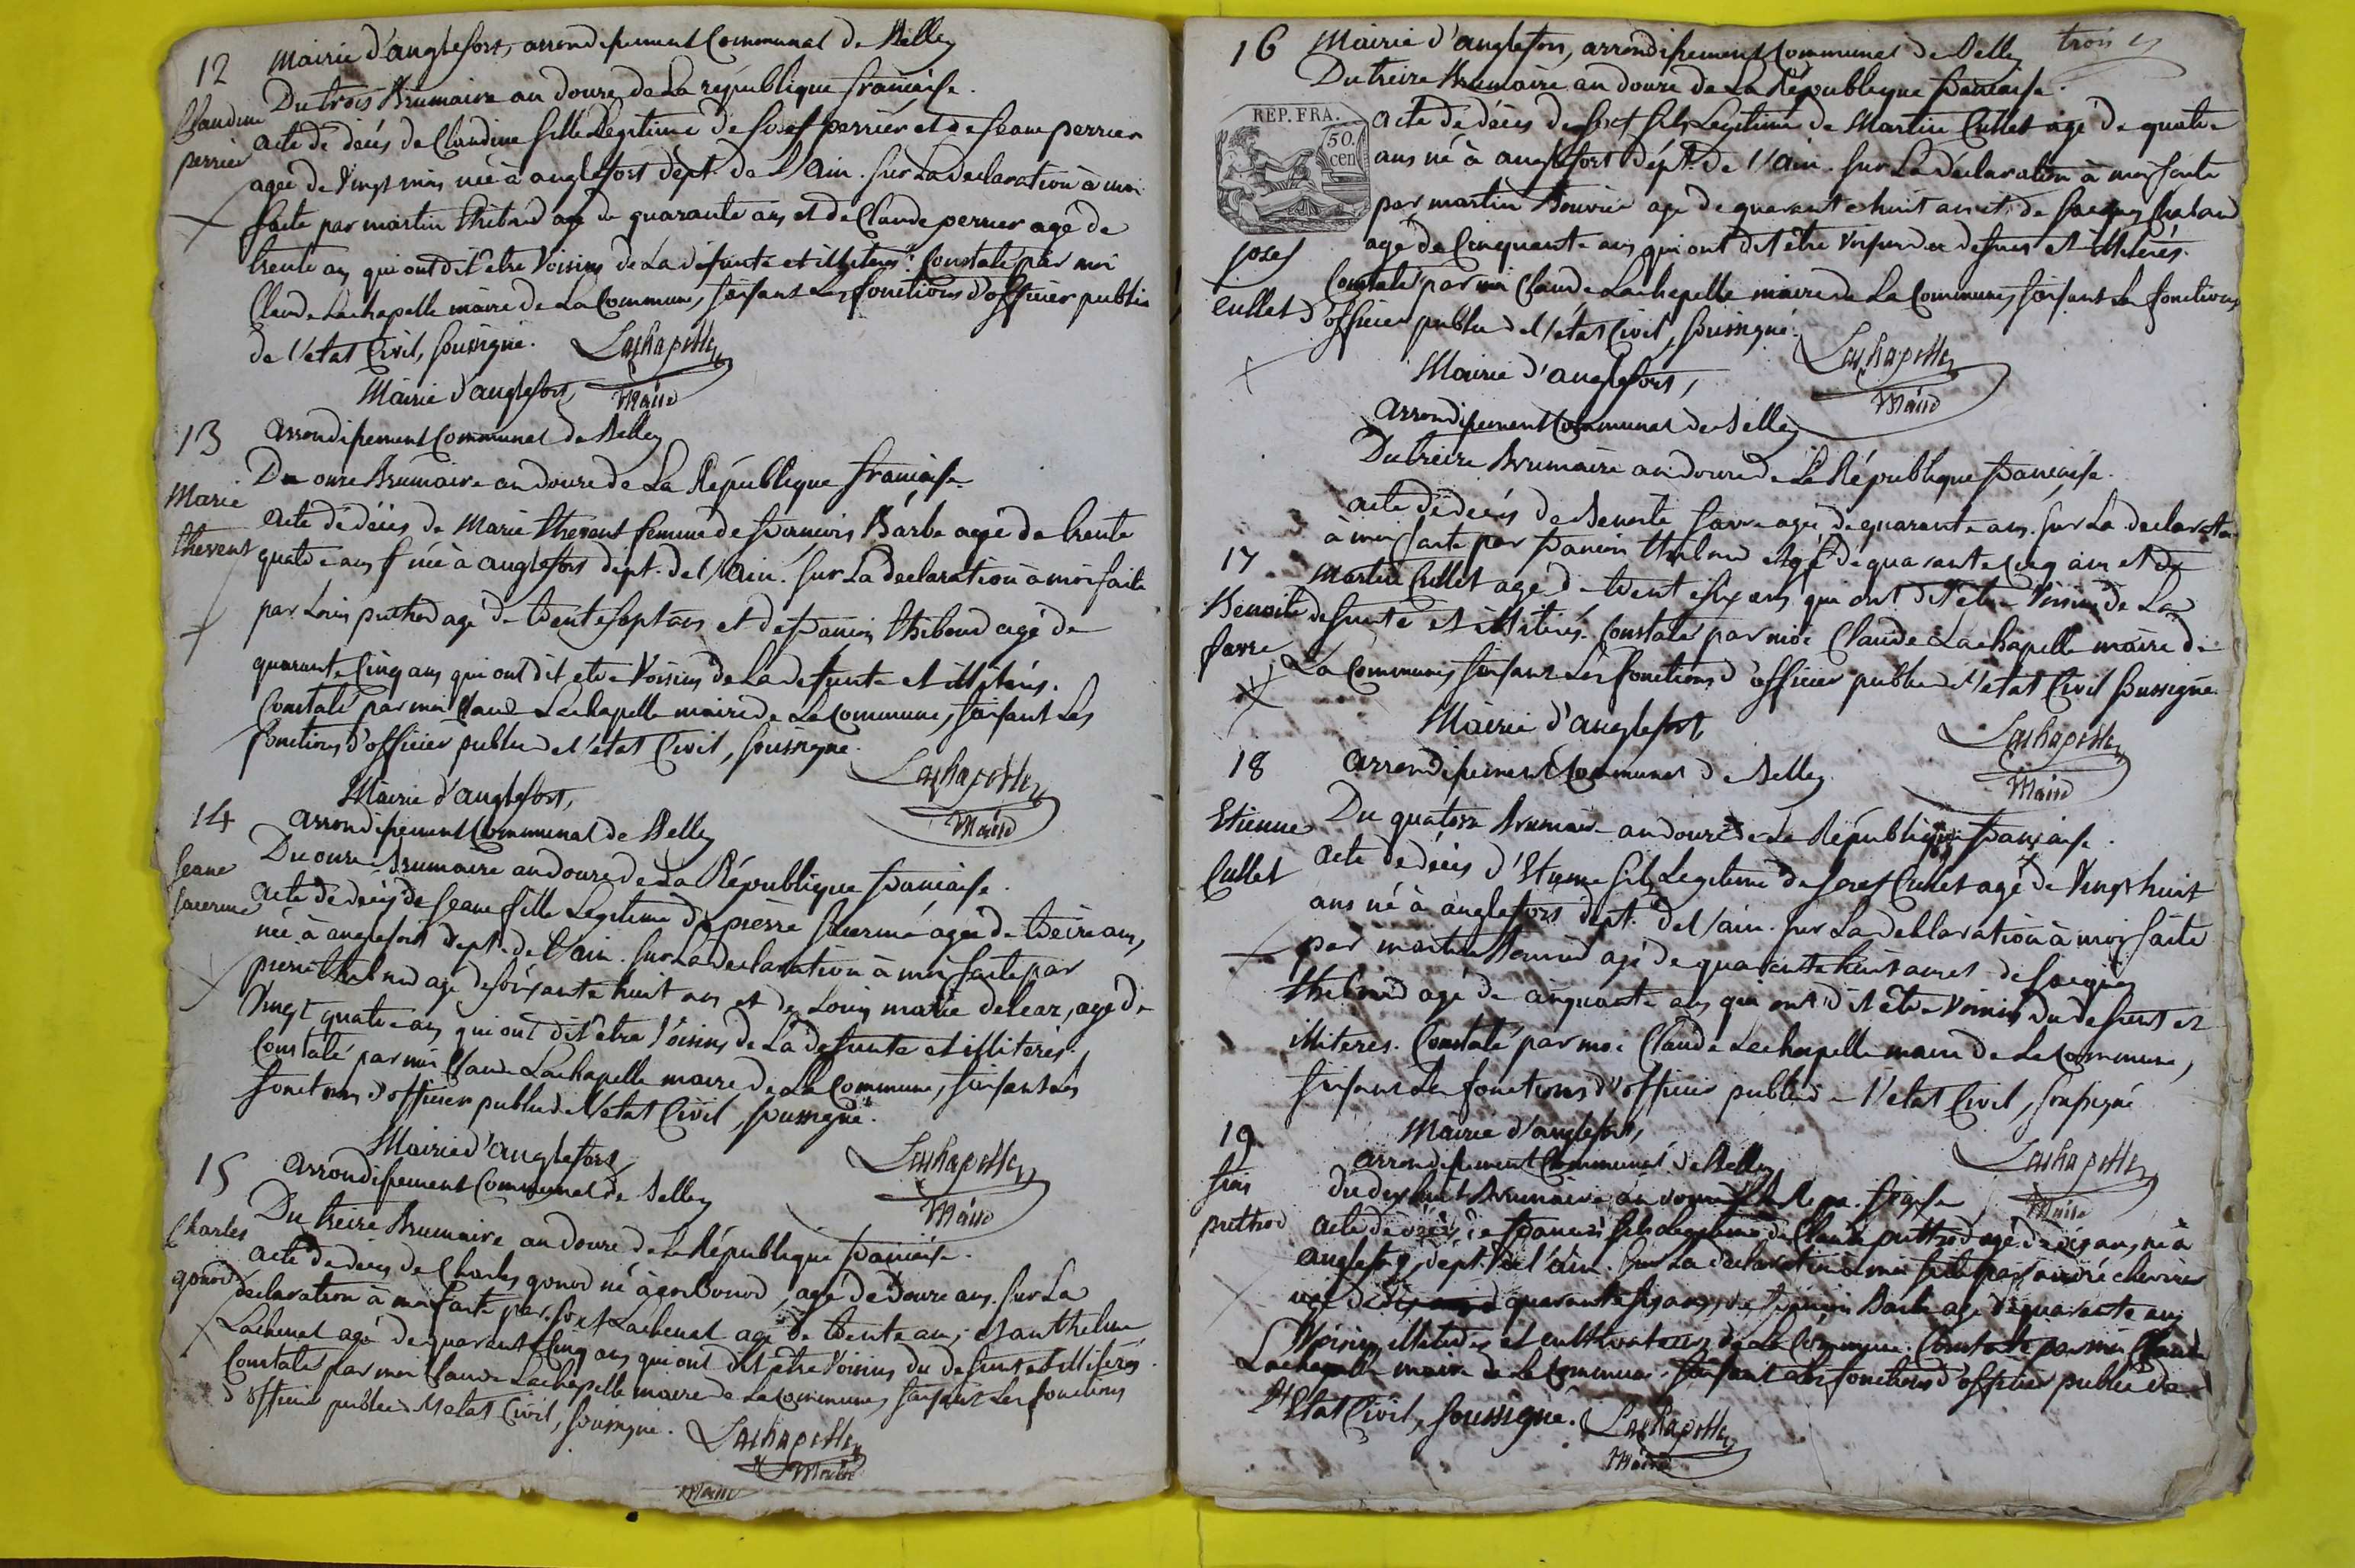 12 Mairie d'anglefort, arrondissement Communal de Belley
Du trois Brumaire an douze de La république française.
Claudine perrier
acte de décés de Claudine fille Legitime de Josef perrier et de Jeane perrier
agée de Vingt mois née à anglefort dépt. de L'Ain. Sur La declaration à moi
faite par martin thiboud agé de quarante ans et de Claude perrier agé de
trente ans qui ont dit être Voisins de La defunte et illiterés. Constaté par moi
Claude Lachapelle maire de La Commune, faisant Les fonctions d'officier public
de l'etat Civil, soussigné. Lachapelle
Maire
Mairie d'anglefort,
13 arrondissement Communal de Belley
Du onze Brumaire an douze de La République française.
Marie thevent
acte de décés de Marie thevent femme de francois Barbe agée de trente
quatre ans née à anglefort dépt. de l'Ain. Sur La declaration à moi faite
par Louis puthod agé de trente sept ans et de francois thiboud agé de
quarante Cinq ans qui ont dit etre Voisins de La defunte et illiterés.
Constaté par moi Claude Lachapelle maire de La Commune, faisant Les
fonctions d'officier public de l'etat Civil, soussigné.
Lachapelle
Maire
Mairie d'anglefort,
14 arrondissement Communal de Belley
Du onze Brumaire an douze de La République francaise.
Jeane
acte de décés de Jeane fille Legitime de pierre agée de treize ans,
née à anglefort dépt. de l'Ain. Sur La declaration à moi faite par
pierre thiboud agé de soixante huit ans et de Louis marie delear, agé de
Vingt quatre ans qui ont dit être Voisins de La defunte et illiterés.
Constaté par moi Claude Lachapelle maire de La Commune, faisant Les
fonctions d'officier public de l'etat Civil, soussigné.
Lachapelle
Maire
Mairie d'anglefort,
15 arrondissement Communal de Belley
Du treize Brumaire an douze de La République francaise.
Charles gonod
acte de deces de Charles gonod né à corbonod, agé de Douze ans. Sur La
declaration à moi faite par Josef Lachenal agé de trente ans, et anthelme
Lachenal agé de quarante Cinq ans qui ont dit être Voisins du defunt et illiterés.
Constaté par moi Claude Lachapelle maire de La Commune, faisant Les fonctions
d'officier public de l'etat Civil, soussigné. Lachapelle
Maire
Maire
trois
16 Mairie d'anglefort, arrondissement Communal de Belley
Du treize Brumaire an douze de La République francaise.
REP. FRA.
50.
cen
Josef Cullet
acte de décés de Josef fils Legitime de Martin Cullet agé de quatre
ans né à anglefort dépt. de l'Ain. Sur La declaration à moi faite
par martin Bouvier agé de quarante huit ans et de Jacques
agé de Cinquante ans qui ont dit être Voisins du defunt et illiterés.
Constaté par moi Claude Lachapelle maire de La Commune, faisant Les fonctions
d'officier public de l'état Civil, soussigné.
Lachapelle
Maire
Mairie d'anglefort,
arrondissement Communal de Belley
Du treize Brumaire an douze de La République francaise.
acte de décés de Benoite favre agée de quarante ans. Sur La declaration
à moi faite par francois thiboud agé de quarante Cinq ans et de
17 Benoite favre
Martin Cullet agé de trente six ans qui ont dit etre Voisins de La
defunte et illiterés. Constaté par moi Claude Lachapelle maire de
La Commune, faisant Les fonctions d'officier public de l'etat Civil soussigné.
Lachapelle
Maire
Mairie d'anglefort,
18 arrondissement Communal de Belley
Du quatorze Brumaire an douze de La République francaise.
Etienne Cullet
acte de décés d'Etienne fils Legitime de Josef Cullet agé de Vingt huit
ans né à anglefort dépt. de l'ain. Sur La declaration à moi faite
par martin agé de quarante huit ans et de Jacques
thiboud agé de cinquante ans qui ont dit etre Voisins du defunt et
illiterés. Constaté par moi Claude Lachapelle maire de La Commune,
faisant Les fonctions d'officier public de l'etat Civil, soussigné
Lachapelle
Maire
19 Mairie d'anglefort,
arrondissement Communal de Belley
du dix huit Brumaire an douze
puthod
acte de décés de francois fils Legitime de Claude puthod agé de dix ans, né à
anglefort, dépt. de l'ain. Sur La declaration à moi faite par andré
agé de quarante six ans, de francois Barbe agé de quarante ans
Voisins, illiterés et cultivateurs de La Commune. Constaté par moi Claude
Lachapelle maire de La Commune, faisant Les fonctions d'officier public de
l'Etat Civil, soussigné. Lachapelle
Maire